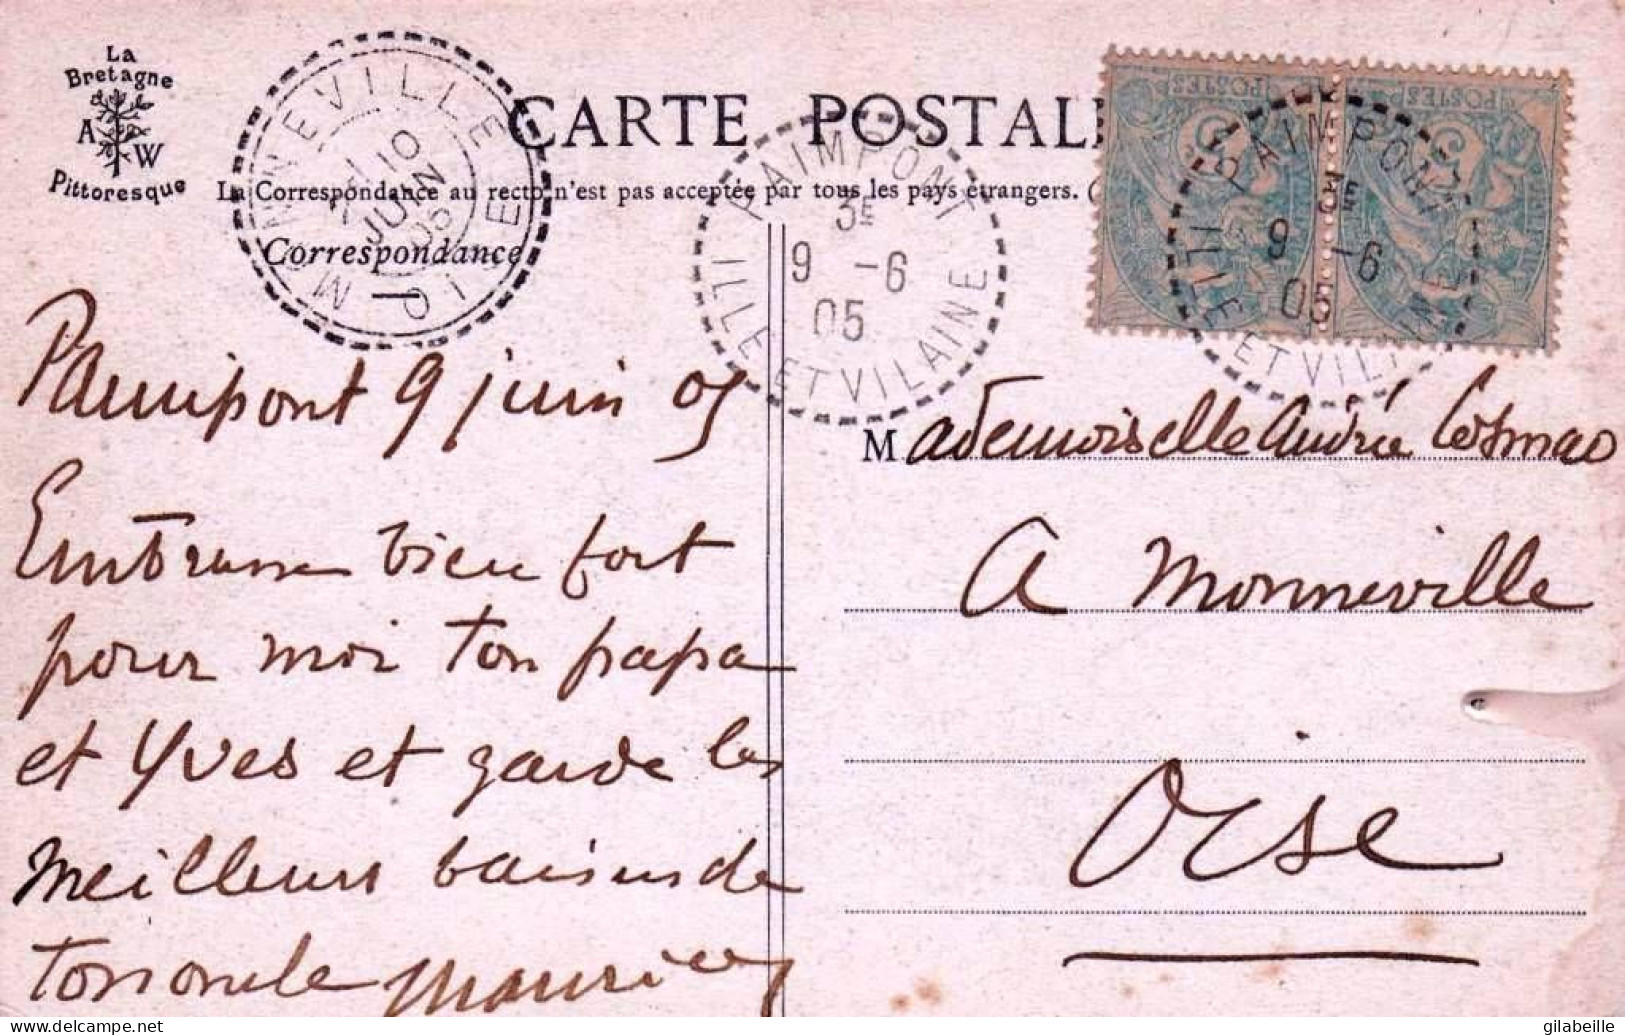 La
Bretagne
A W
Pittoresque
MONNEVILLE
OISE
10
JUIN
05
CARTE POSTALE
La Correspondance au recto n'est pas acceptée par tous les pays étrangers. (
Correspondance
PAIMPONT
3E
9 -6
05
ILLE ET VILAINE
POSTES POSTES
5
PAIMPONT
3E
9 -6
05
ILLE ET VILAINE
Paimpont 9 juin 05
Embrasse bien fort
pour moi ton papa
et Yves et garde les
meilleurs baisers de
ton oncle Maurice
Mademoiselle Andrée
A Monneville
Oise
gilabeille
delcampe.net